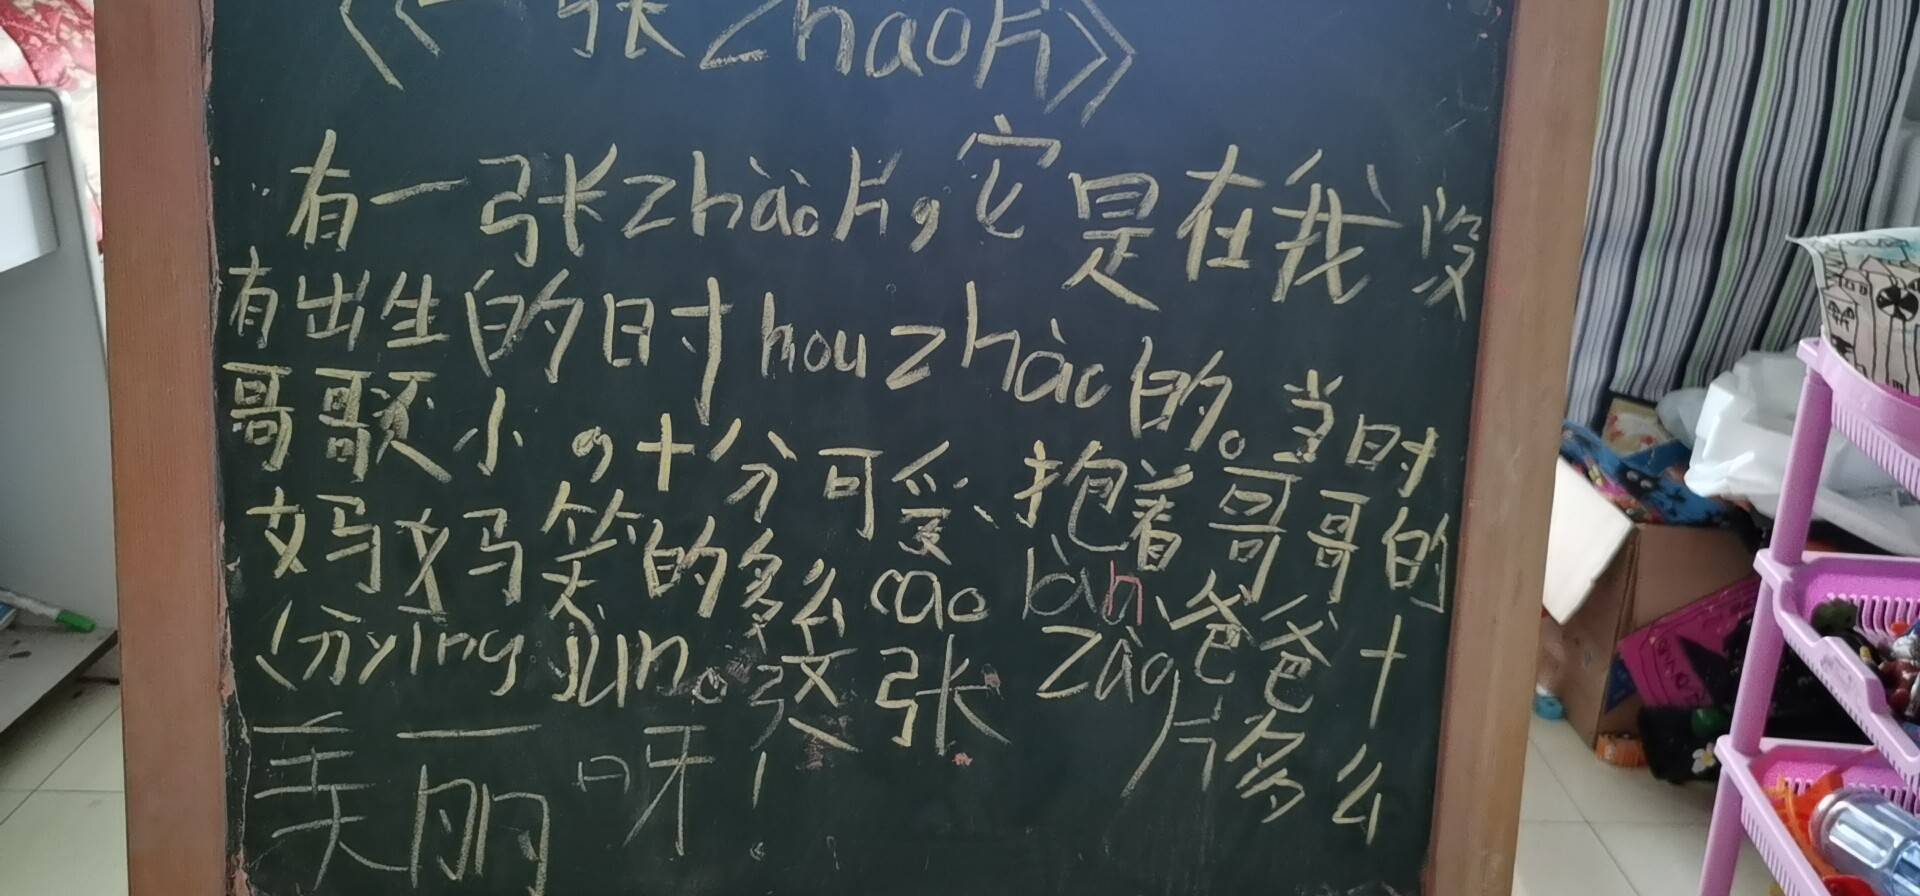 《一张zhao片》
有一张zhào片，它是在我没
有出生的时houzhào的。当时
哥哥还小，十分可爱、抱着哥哥的
妈妈笑的多么càn làn、爸爸十
分yīng jùn。这张zàg片多么
美丽呀！